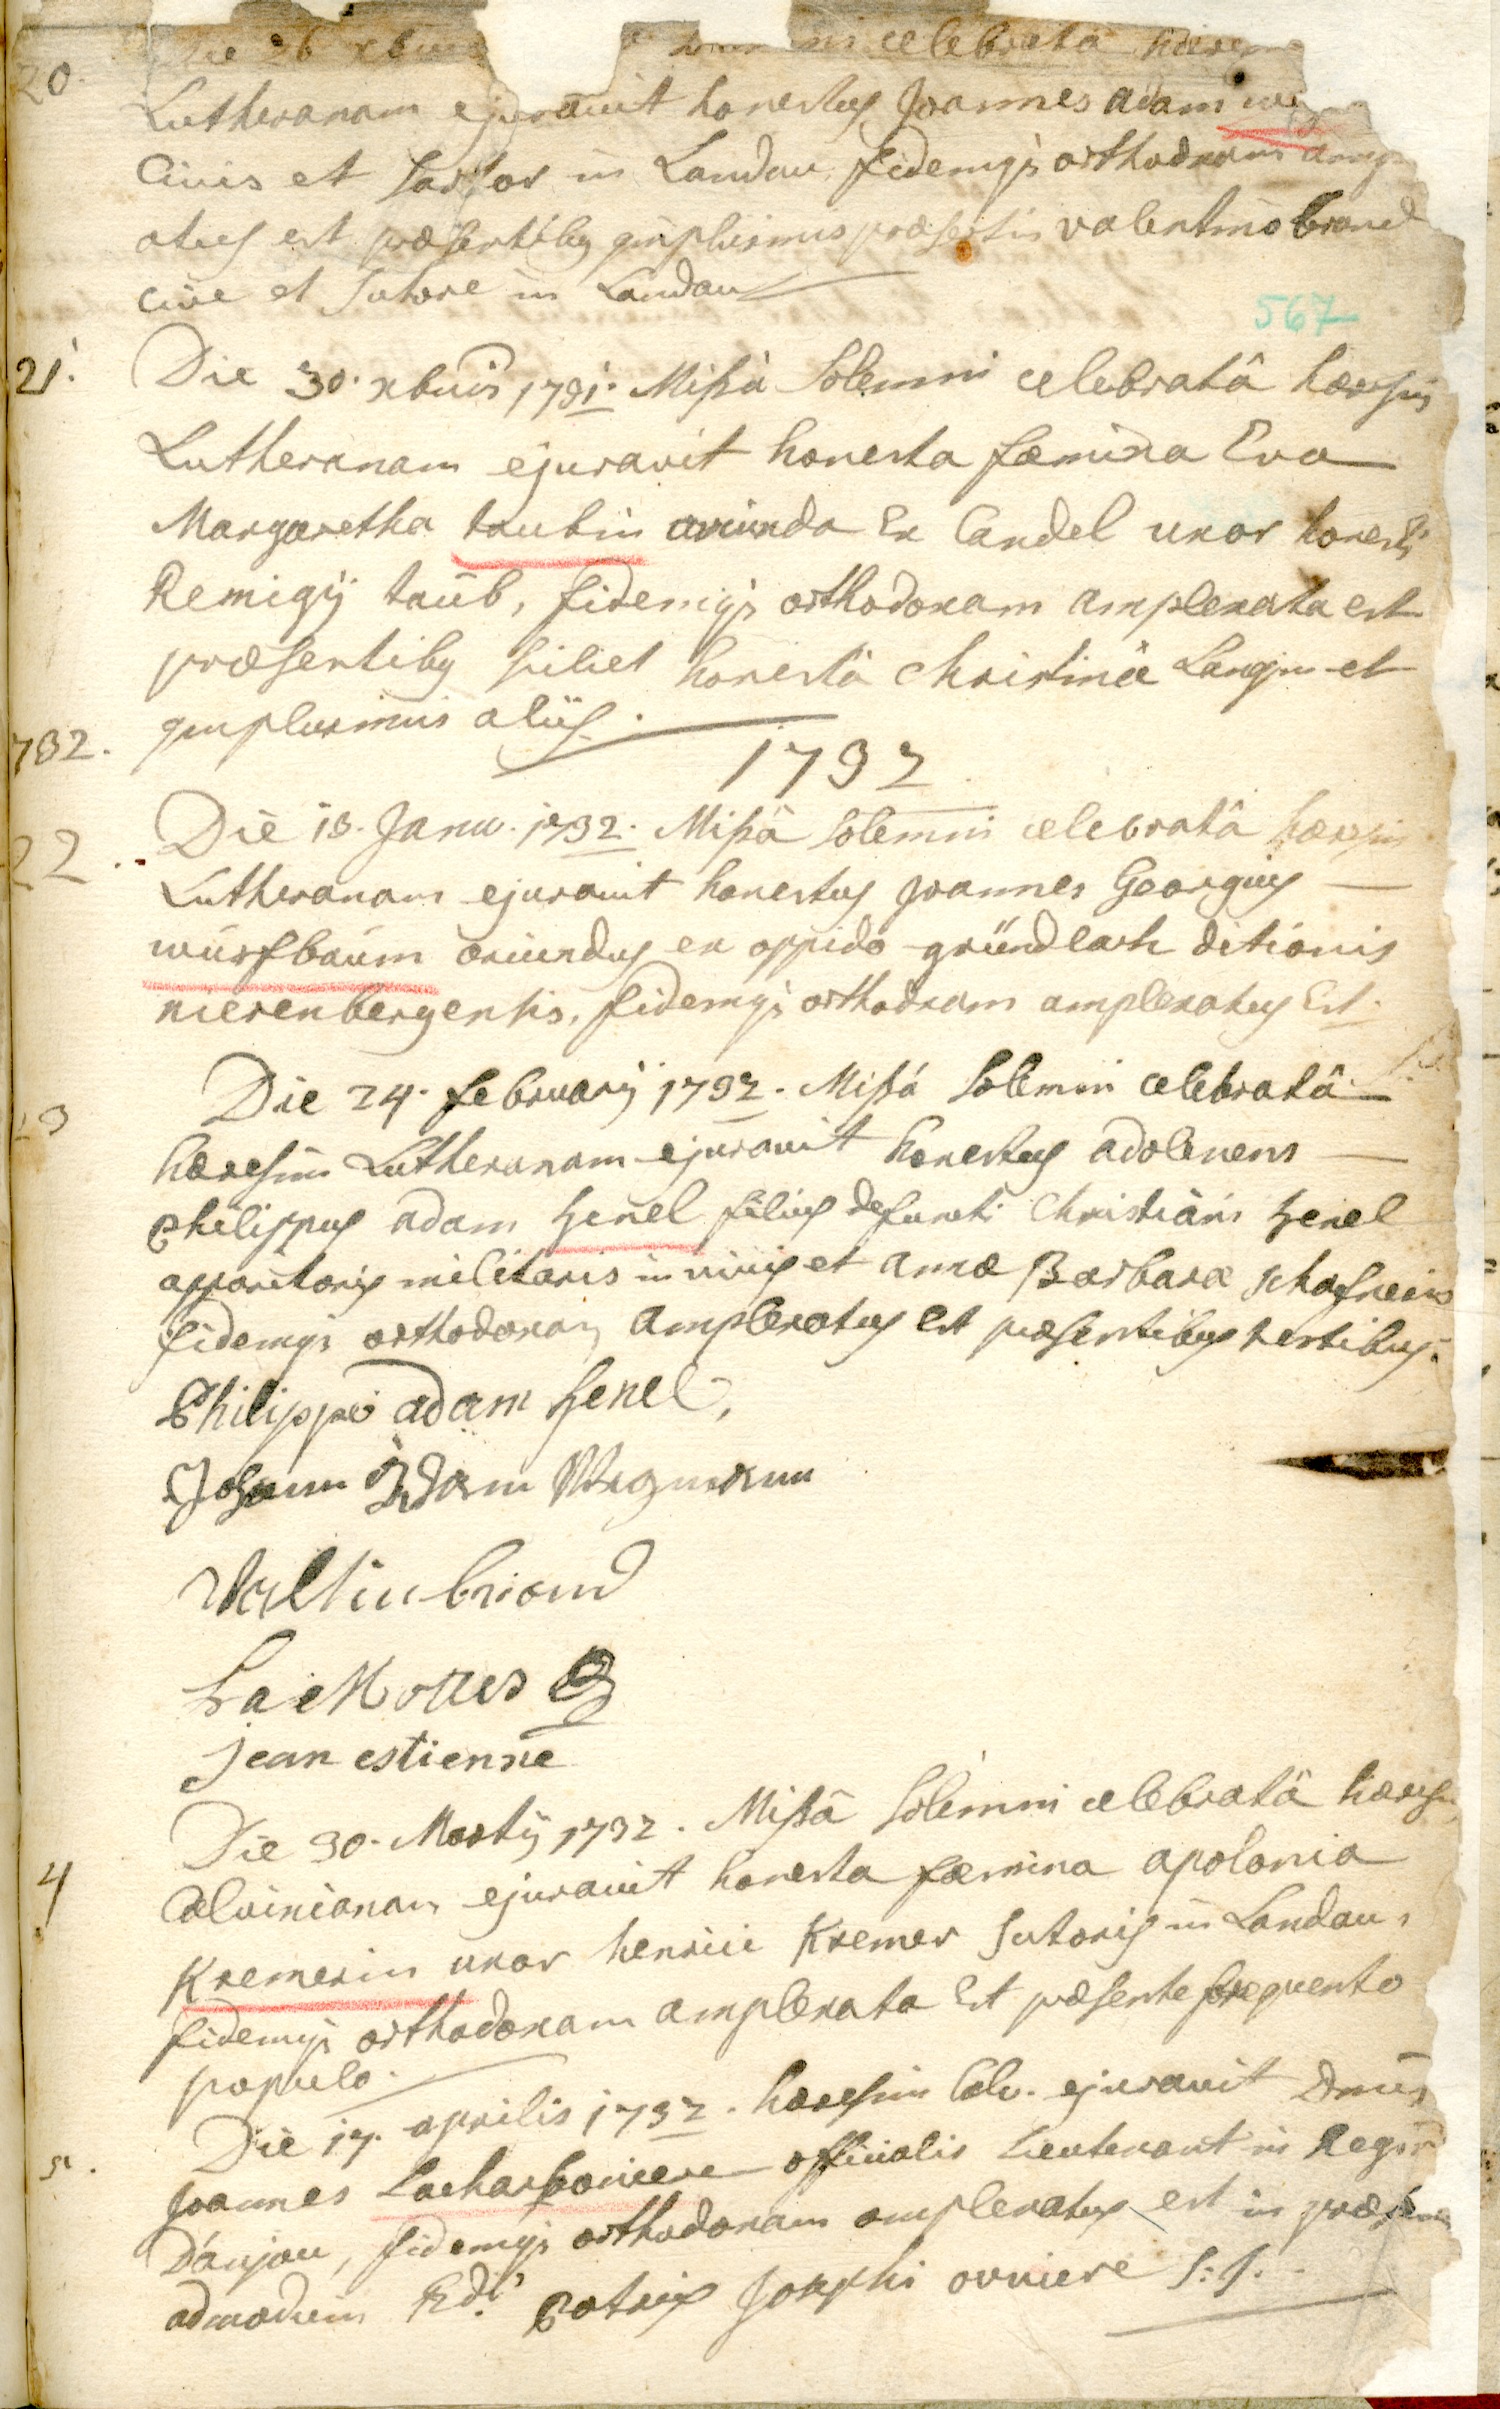 20. Die 26 xbris celebratâ hæres
Lutheranam ejuravit honestus Joannes adam
Civis et sartor in Landau, fidemqs orthodoxam amp
atus est præsentibus quamplurimis præsertim valentino briand
cive et Sutore in Landau
567
21. Die 30. xbris 1731. Missâ Solemni celebratâ hæresin
Lutheranam ejuravit honesta fæmina Eva
Margaretha taubin oriunda Ex Candel uxor honesti
Remigÿ taüb, fidemqs orthodoxam amplexata est
præsentibus honestâ Christinâ Langin et
quamplurimis aliis.
1732.
1732
22. Die 18. Janu. 1732. Missâ Solemni celebratâ hæresin
Lutheranam ejuravit honestus Joannes Georgius
würfbaüm oriundus ex oppido gründlach ditionis
nierenbergensis, fidemqs orthodoxam amplexatus Est.
23 Die 24. februarÿ 1732. Missâ Solemni celebratâ
hæresim Lutheranam ejuravit honestus adolescens
Philippus adam henel filius defuncti Christiani henel
apparitoris militaris in vivis et annæ Barbaræ
fidemqs orthodoxam amplexatus est præsentibus testibus.
Philipps adam henel,
Johann Adam Wegmann
Valtin briand
jean estienne
4 Die 30. Martÿ 1732. Missâ Solemni celebratâ hæresin
Calvinianam ejuravit honesta fæmina apolonia
Kremerin uxor henrici Kremer Sutoris in Landau,
fidemqs orthodoxam amplexata Est præsente frequente
populo.
5. Die 17. aprilis 1732. hæresin Calv. ejuravit Dnus
Joannes Lacharboniere officialis Lieutenant in Regim
D'anjou, fidemqs orthodoxam amplexatus est in præsen
admodum Rdi Patris Josephi ovriere S:J.